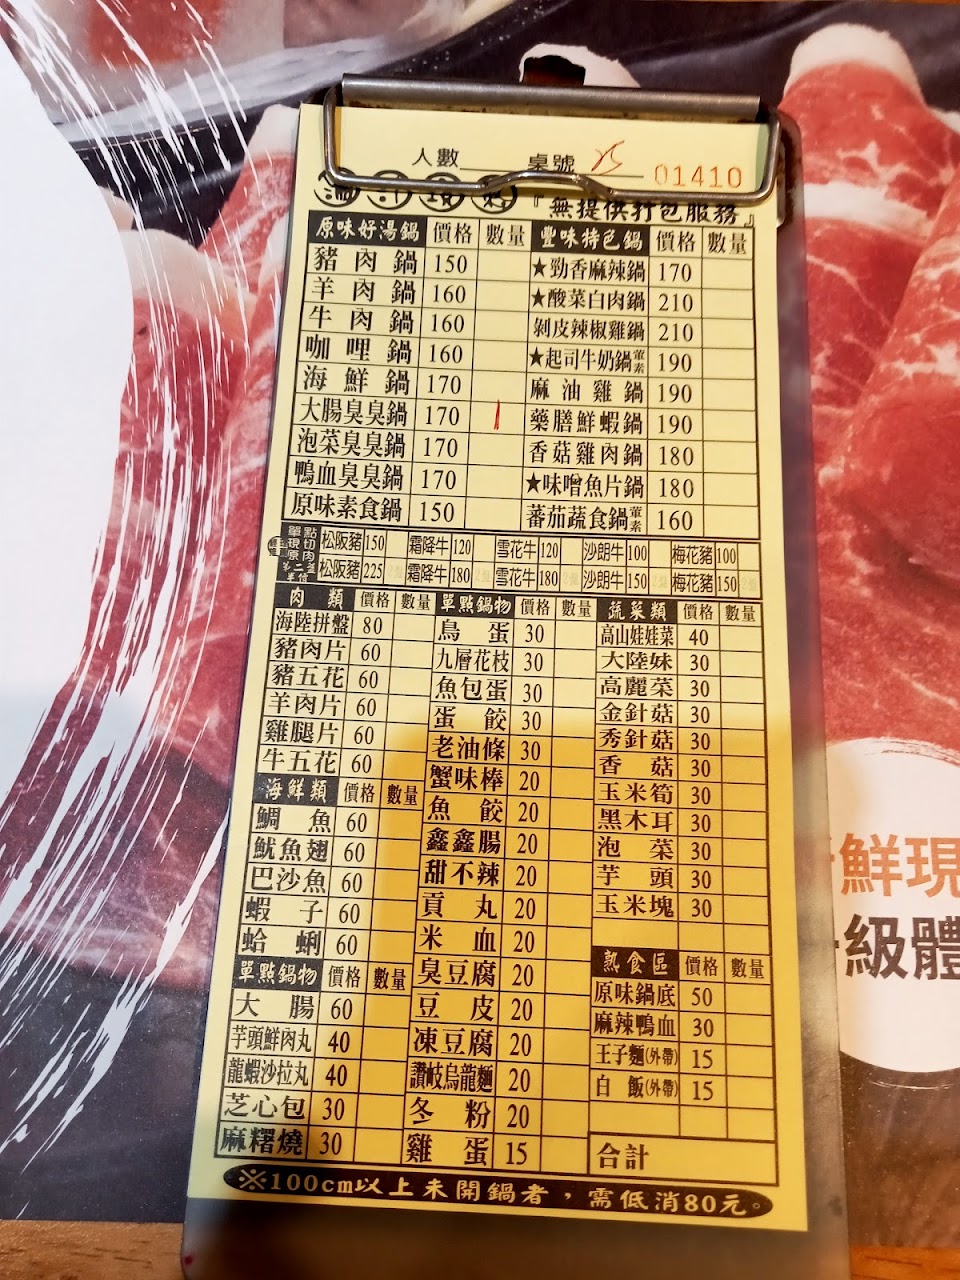 人數 桌號 25 01410
『無提供打包服務』
原味好湯鍋 價格 數量 豐味特色鍋 價格 數量
豬肉鍋 150 ★勁香麻辣鍋 170
羊肉鍋 160 ★酸菜白肉鍋 210
牛肉鍋 160 剝皮辣椒雞鍋 210
咖哩鍋 160 ★起司牛奶鍋葷素 190
海鮮鍋 170 麻油雞鍋 190
大腸臭臭鍋 170 藥膳鮮蝦鍋 190
泡菜臭臭鍋 170 香菇雞肉鍋 180
鴨血臭臭鍋 170 ★味噌魚片鍋 180
原味素食鍋 150 蕃茄蔬食鍋葷素 160
單點現切原肉
松阪豬 150 霜降牛 120 雪花牛 120 沙朗牛 100 梅花豬 100
松阪豬 225 霜降牛 180 雪花牛 180 沙朗牛 150 梅花豬 150
肉類 價格 數量 單點鍋物 價格 數量 蔬菜類 價格 數量
海陸拼盤 80 鳥蛋 30 高山娃娃菜 40
豬肉片 60 九層花枝 30 大陸妹 30
豬五花 60 魚包蛋 30 高麗菜 30
羊肉片 60 蛋餃 30 金針菇 30
雞腿片 60 老油條 30 秀針菇 30
牛五花 60 蟹味棒 20 香菇 30
海鮮類 價格 數量 魚餃 20 玉米筍 30
鯛魚 60 鑫鑫腸 20 黑木耳 30
魷魚翅 60 甜不辣 20 泡菜 30
巴沙魚 60 貢丸 20 芋頭 30
蝦子 60 米血 20 玉米塊 30
蛤蜊 60 臭豆腐 20 熟食區 價格 數量
單點鍋物 價格 數量 豆皮 20 原味鍋底 50
大腸 60 凍豆腐 20 麻辣鴨血 30
芋頭鮮肉丸 40 讚岐烏龍麵 20 王子麵(外帶) 15
龍蝦沙拉丸 40 冬粉 20 白飯(外帶) 15
芝心包 30 雞蛋 15
麻糬燒 30 合計
※100cm以上未開鍋者，需低消80元。
鮮現
級體